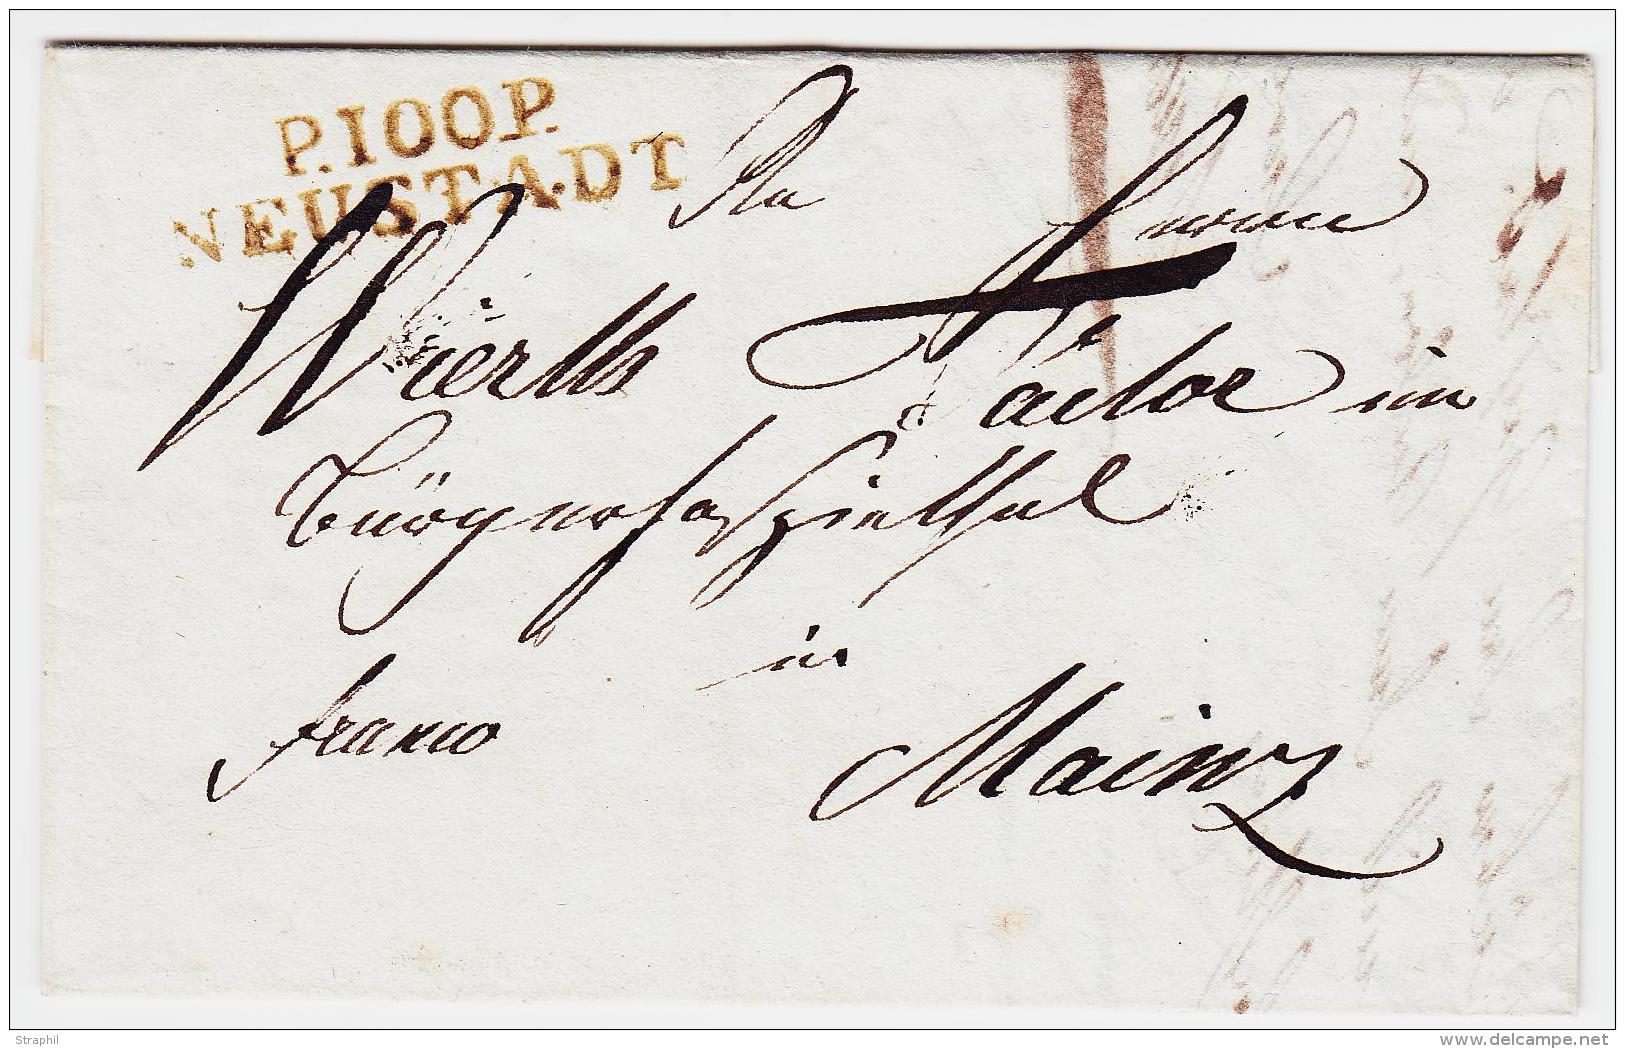 P.100P.
NEUSTADT
An Herrn
Würth Factor im
Bürgerhospithal
in
franco
Mainz
Straphil
www.delcampe.net